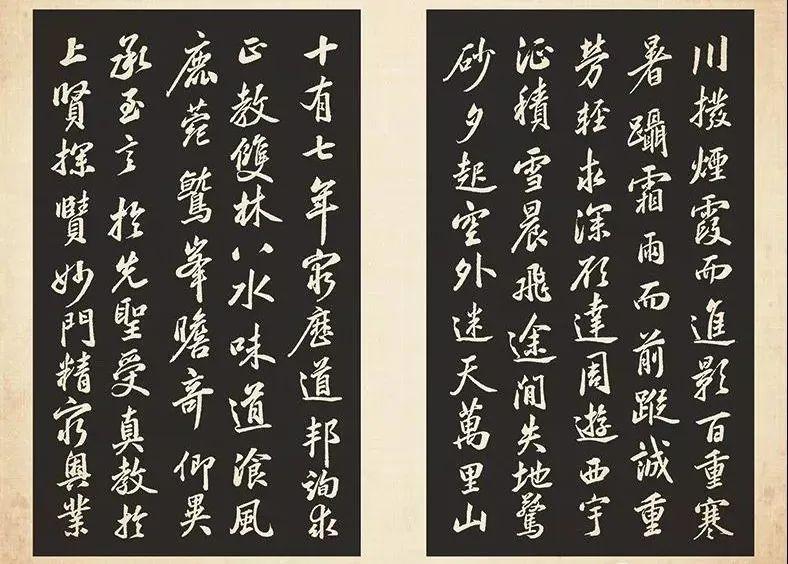 川撥煙霞而進影百重寒
暑躡霜雨而前蹤誠重
勞輕求深願達周遊西宇
征積雪晨飛途間失地驚
砂夕起空外迷天萬里山
十有七年窮歷道邦詢求
正教雙林八水味道飡風
鹿菀鷲峯瞻奇仰異
承至言於先聖受真教於
上賢探賾妙門精窮奧業